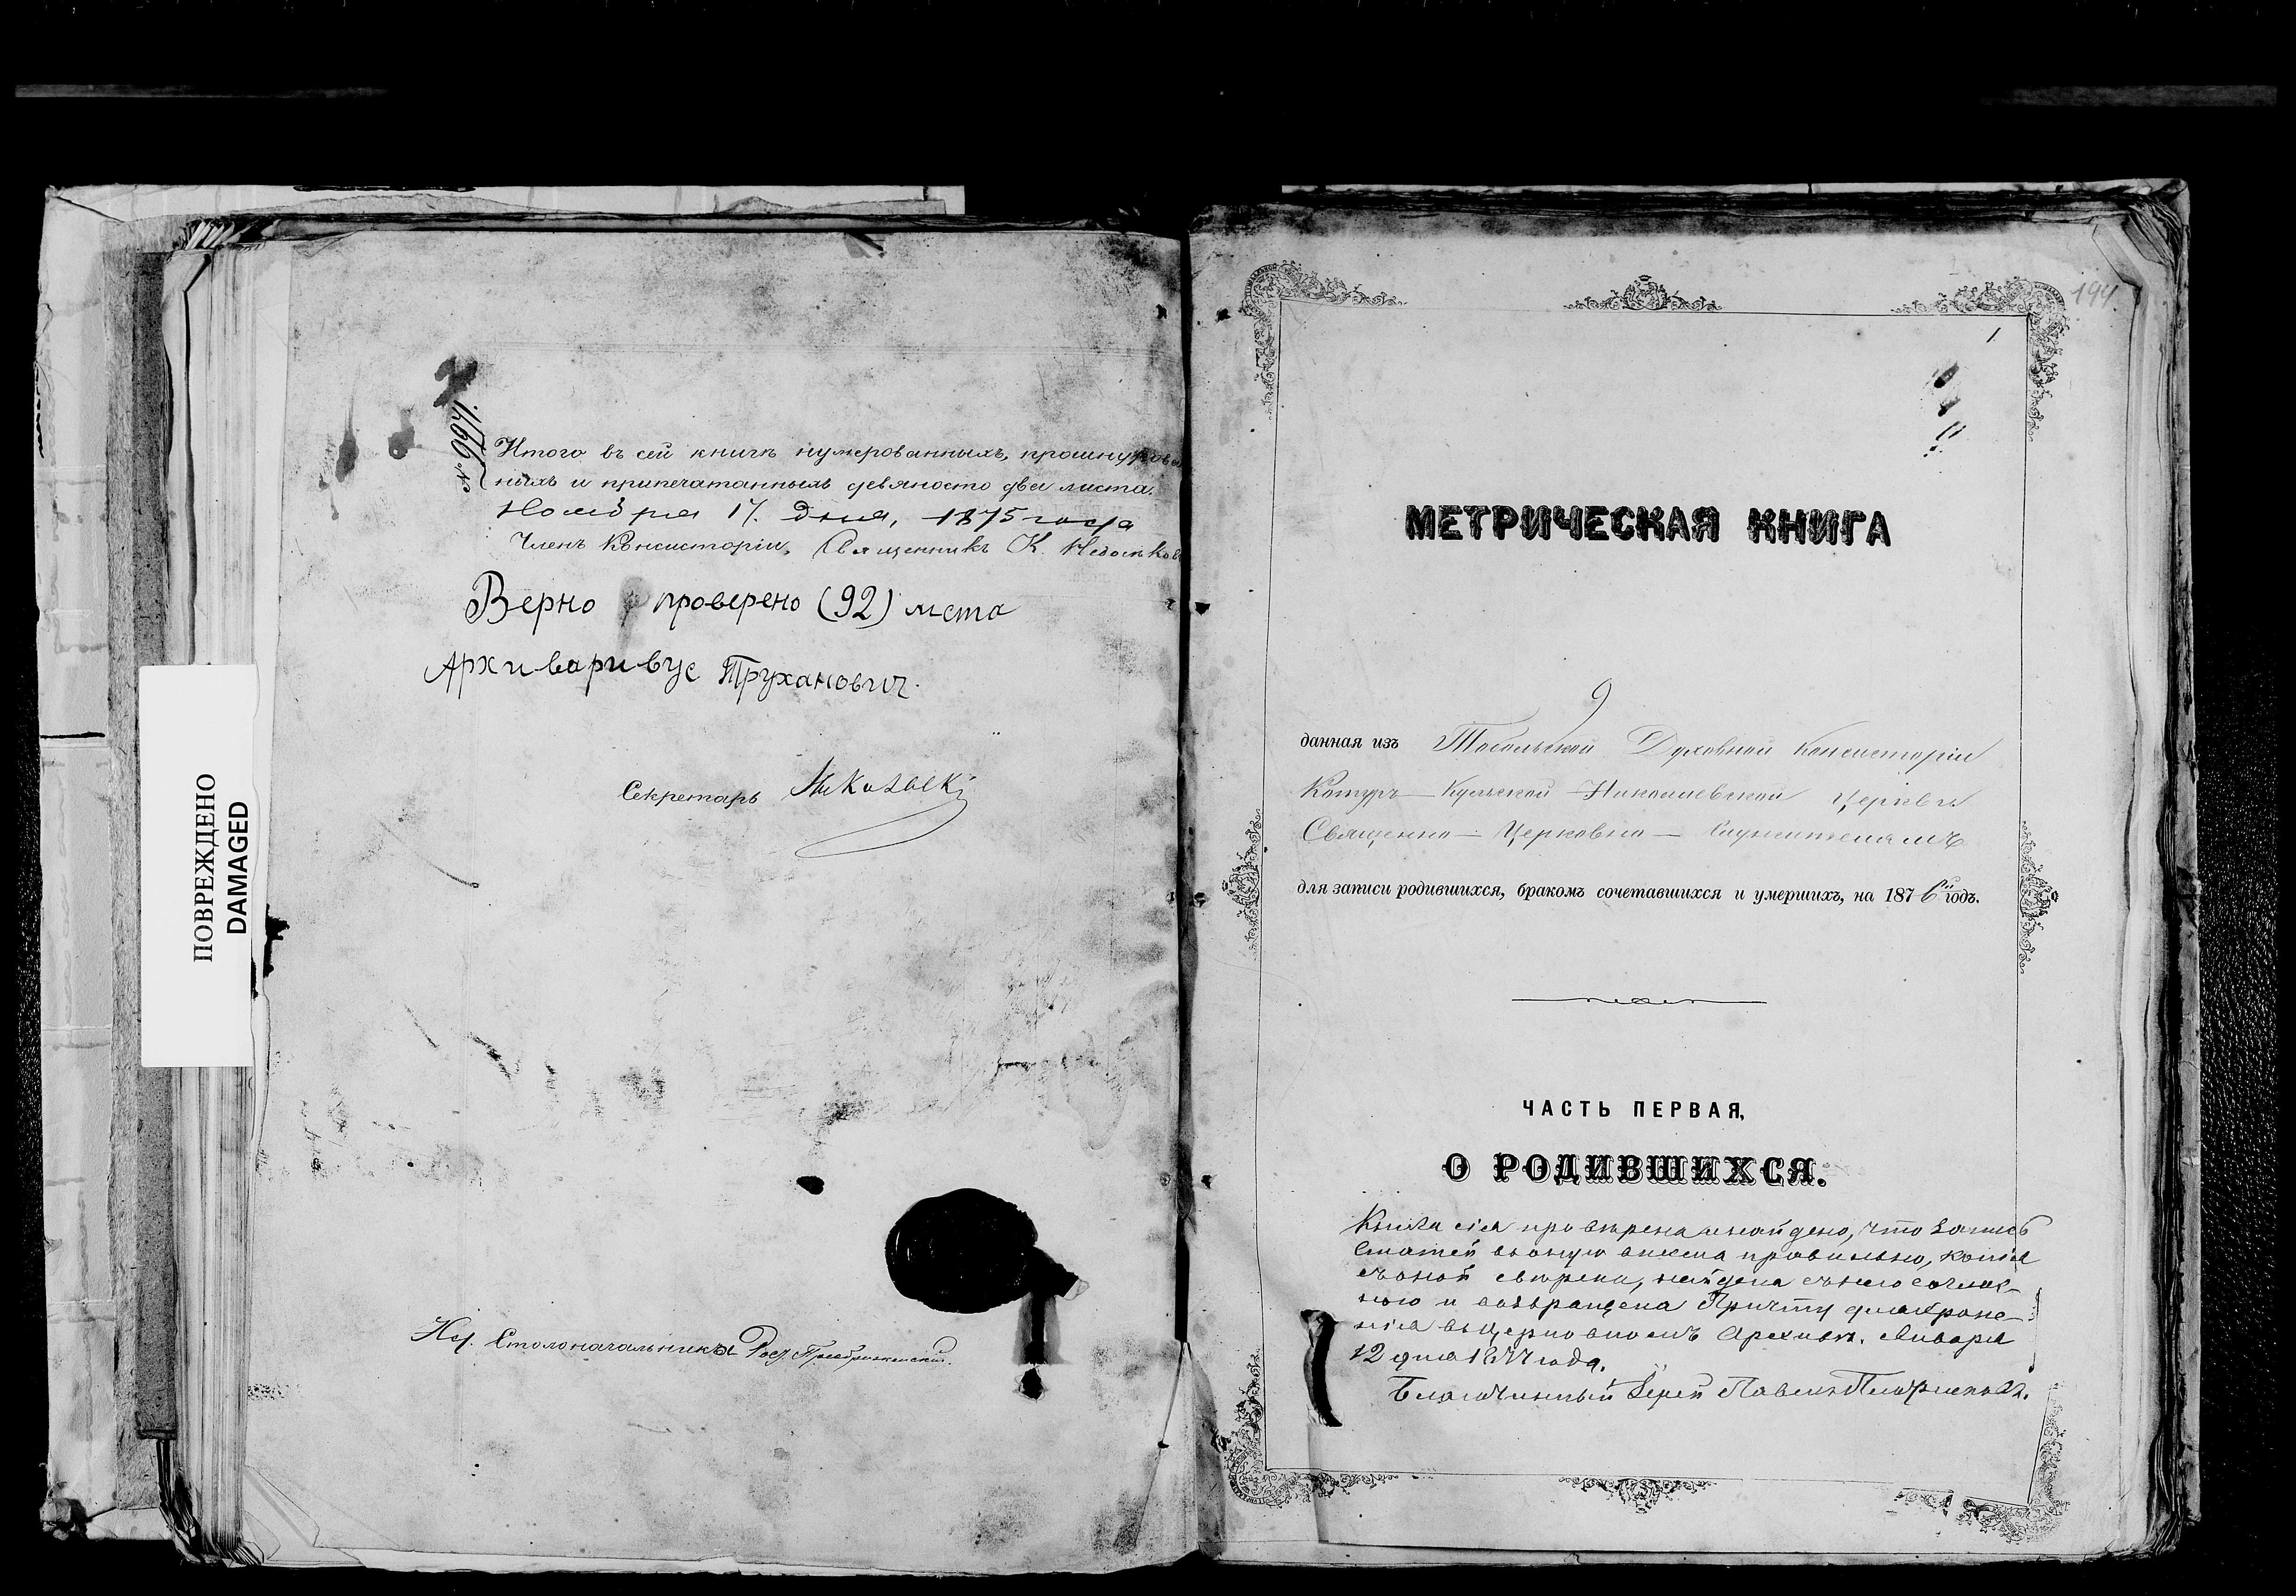 ПОВРЕЖДЕНО
DAMAGED
№ 6641.
Итого въ сей книгѣ нумерованныхъ, прошнурова
ныхъ и припечатанныхъ девяносто два листа.
Ноября 17. дня, 1875 года
Членъ Консисторіи, Священникъ К. Недосѣков
Верно проверено (92) листа
Архивариус Труханович.
Секретарь
И. Столоначальника
194
1
МЕТРИЧЕСКАЯ КНИГА
9
данная изъ Тобольской Духовной Консисторіи
Котуръ-Кульской Николаевской церкви
Священно-Церковно-Служителямъ
для записи родившихся, бракомъ сочетавшихся и умершихъ, на 1876й годъ.
ЧАСТЬ ПЕРВАЯ,
О РОДИВШИХСЯ.
Книга сія провѣрена и найдено, что запись
статей въ оную внесена правильно, копія
съ оной свѣрена, найдена съ нею соглас-
ною и возвращена Причту для хране-
нія въ церковномъ Архивѣ. Января
12 дня 1877 года.
Благочинный Іерей Павелъ